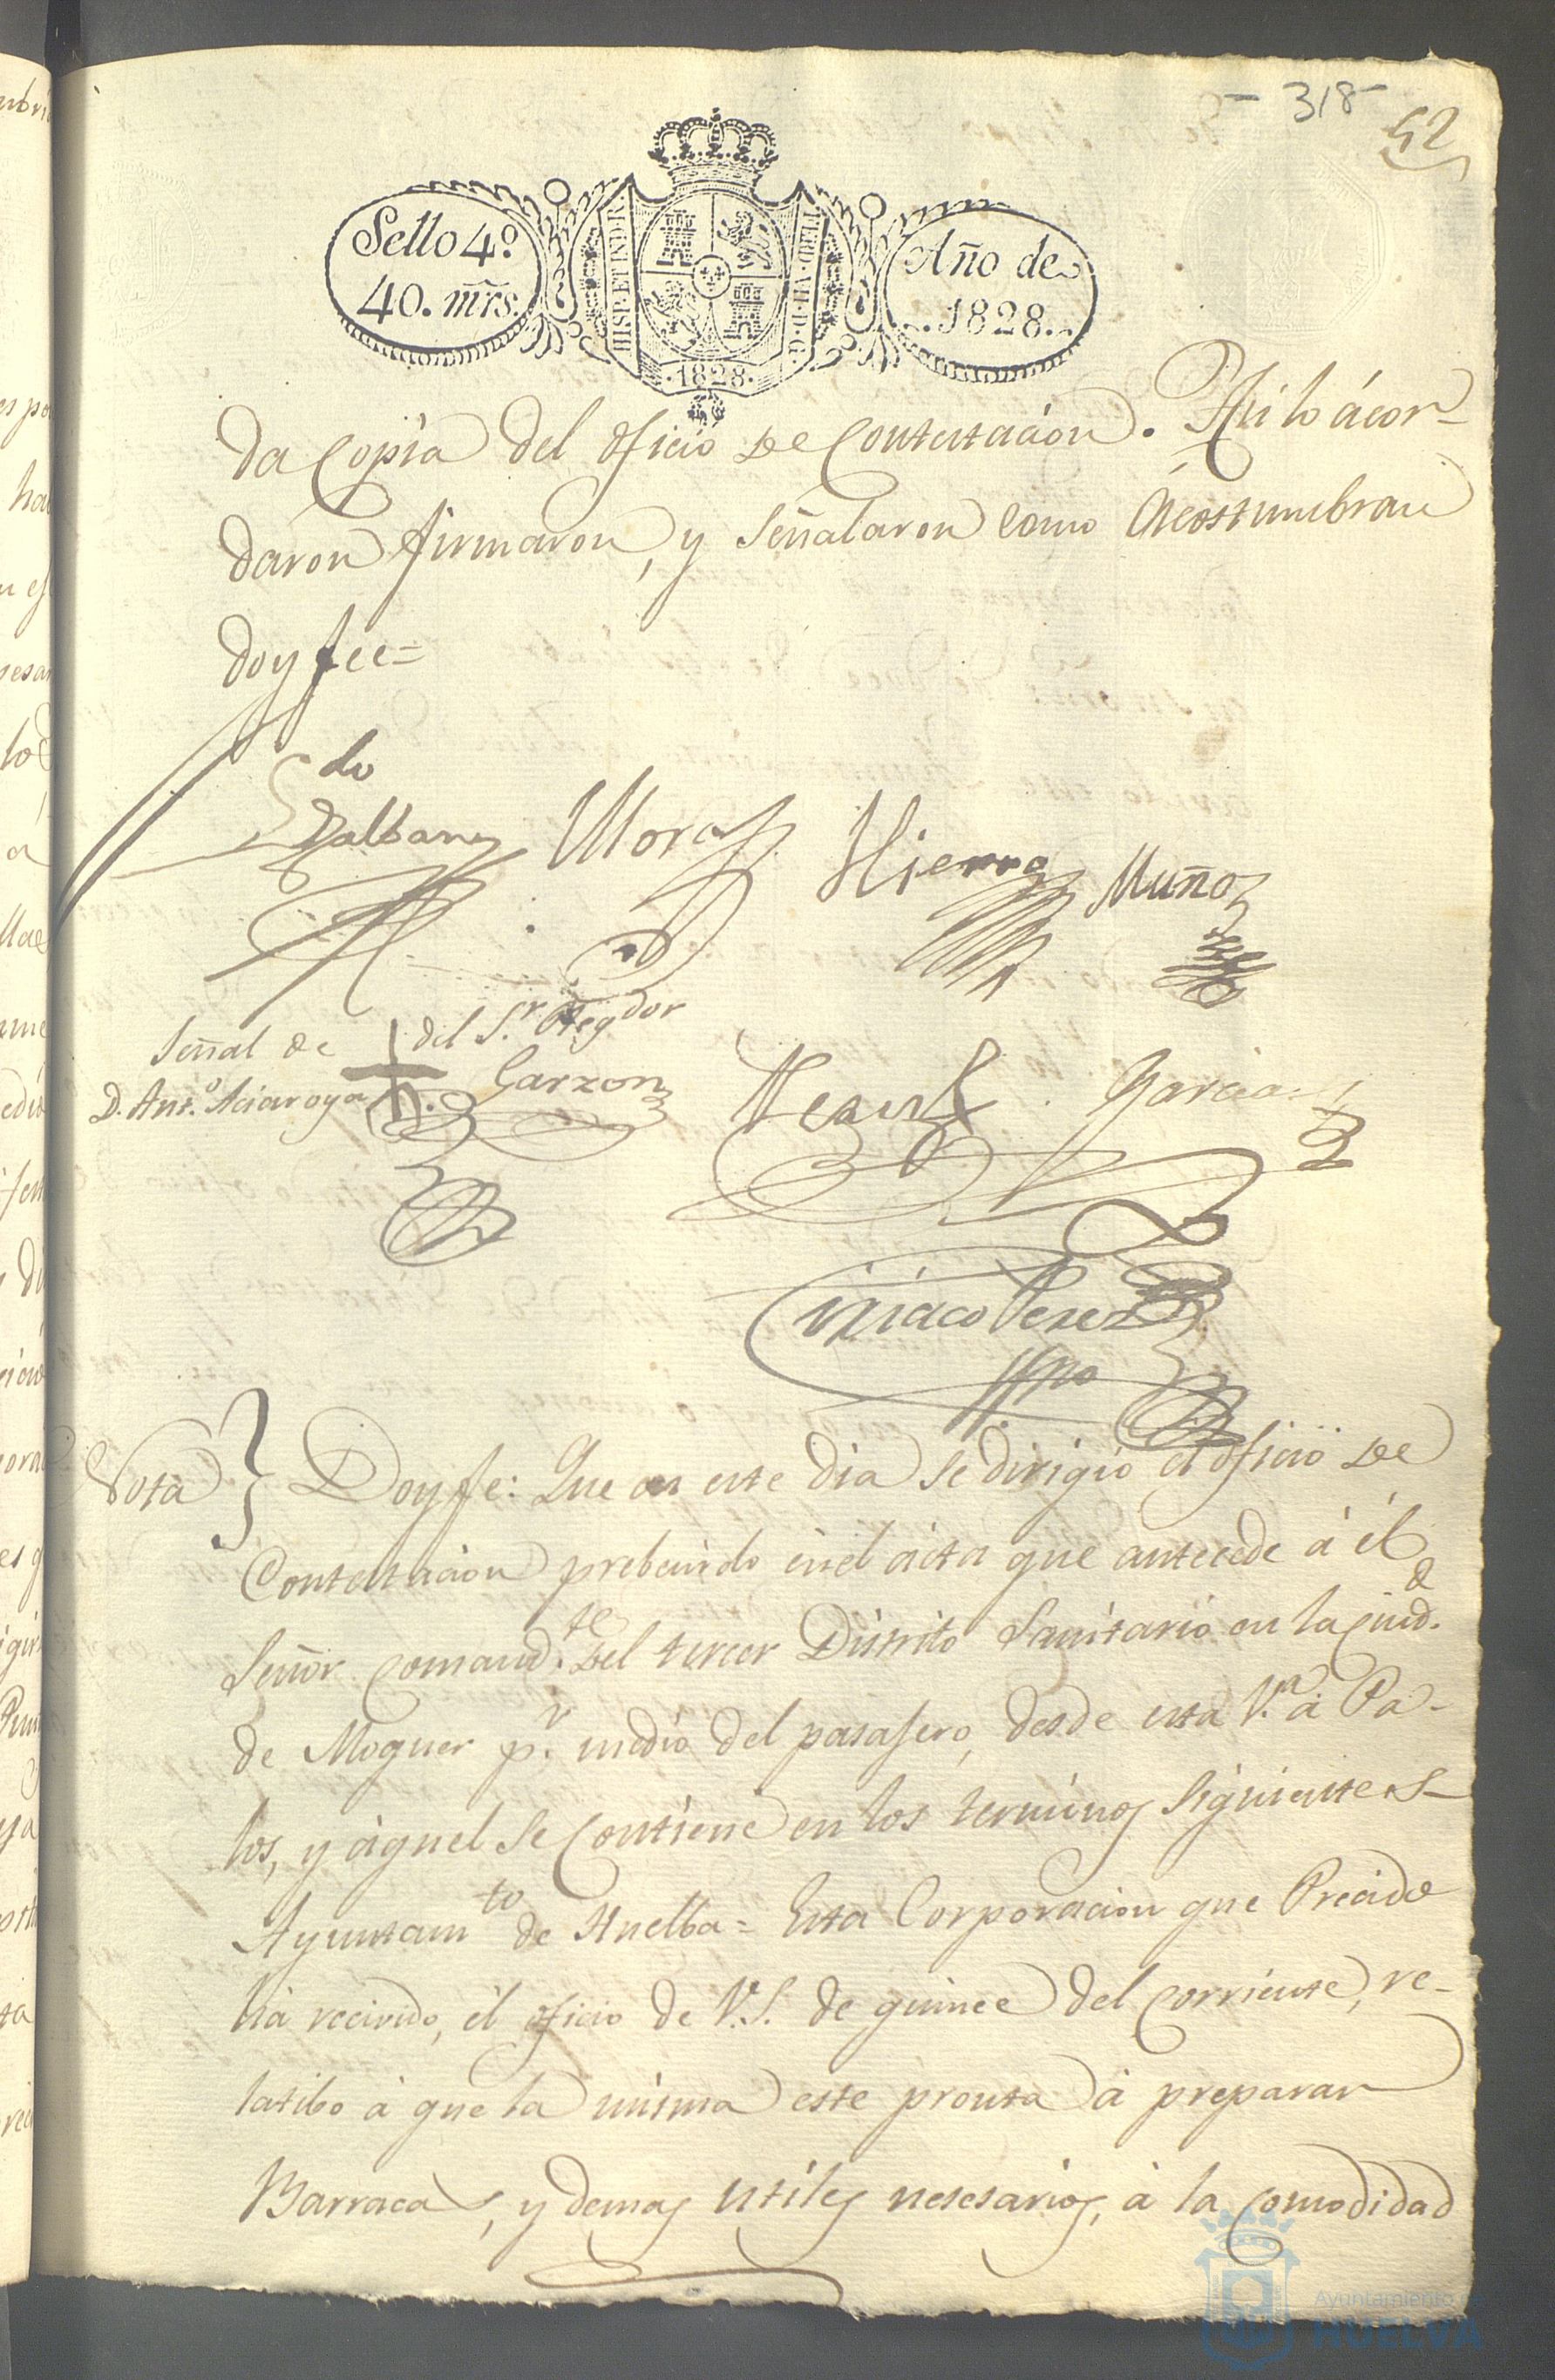 - 318 -
52
Sello 4º.
40. mrs.
HISP. ET IND. R.
FERD. VII. D. G.
· 1828 ·
Año de
1828.
da Copia del oficio de Contestacion. Asi lo ácor-
daron firmaron, y señalaron como ácostumbran
doy fee=
Ldo
Balbane Mora Hierro Muñoz
Señal de + del Sr. Regdor
D. Anto. Garzon Garcia
Ciriaco Perez
Ssno
Nota } Doy fe: Que en este dia se dirigió el oficio de
Contestacion prebenido en el acta que antecede á él
Señor Comandte. del tercer Distrito Sanitario en la Ciudd.
de Moguer pr. medio del pasajero, desde esta Va. á Pa-
los, y áquel se Contiene en los terminos siguientes-
Ayuntamto de Huelba= Esta Corporacion que Precido
há recivido, él oficio de V.S. de quince del corriente, re-
latibo á que la misma este pronta á preparar
Barraca, y demas utiles nesesarios, á la comodidad
Ayuntamiento de
HUELVA